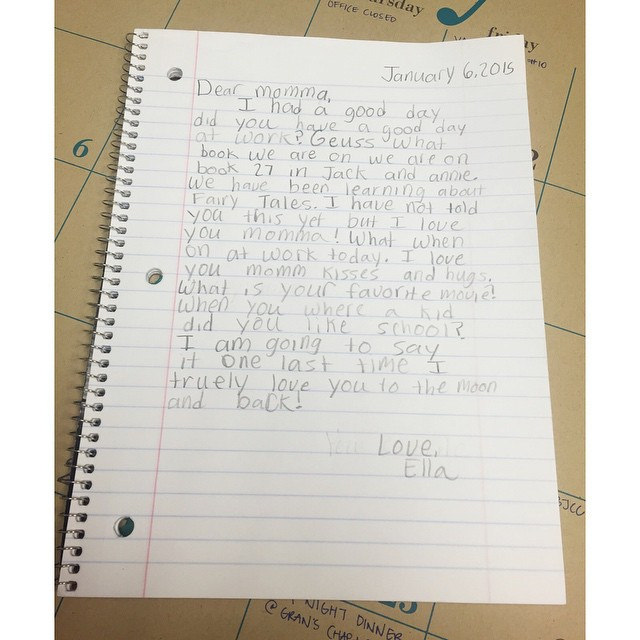 rsday
OFFICE CLOSED
friday
#10
6
January 6, 2015
Dear momma,
I had a good day
did you have a good day
at work? Geuss what
book we are on we are on
book 27 in Jack and annie.
We have been learning about
Fairy Tales. I have not told
you this yet but I love
you momma! What when
on at work today. I love
you momm kisses and hugs.
What is your favorite movie?
When you where a kid
did you like school?
I am going to say
it one last time I
truely love you to the moon
and back!
Love,
Ella
BJCC
NIGHT DINNER
@ GRAN'S